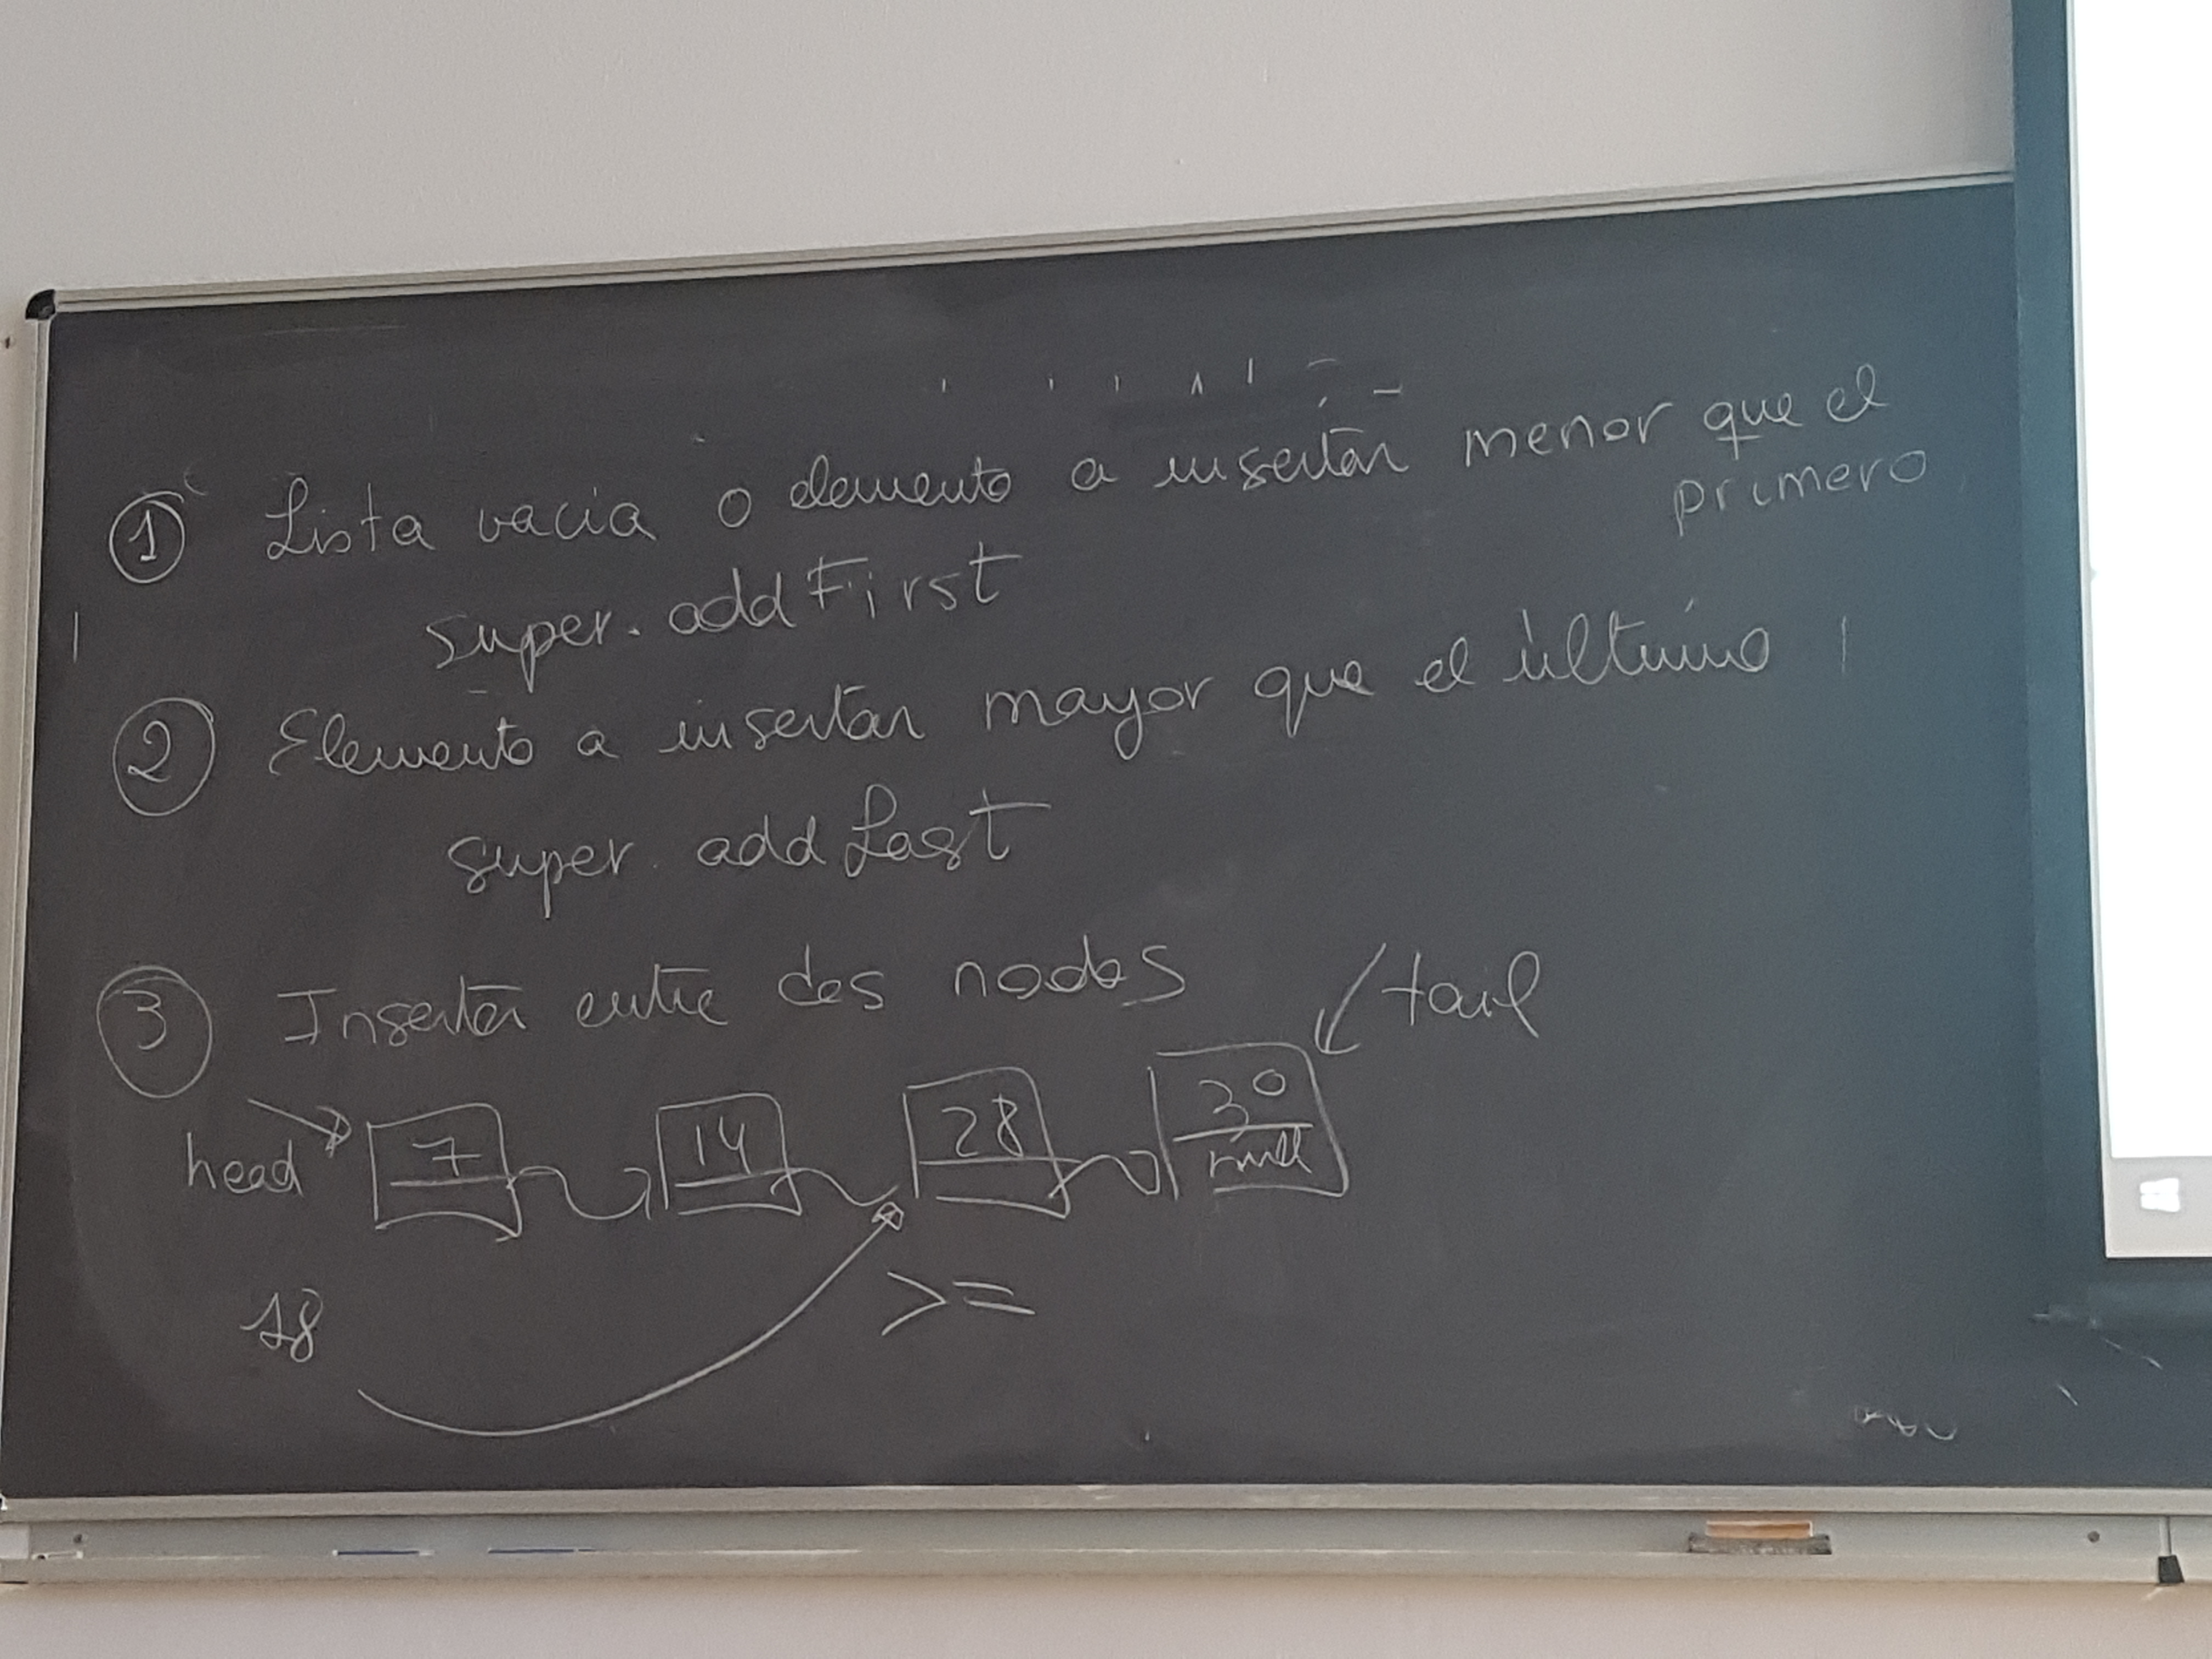 ① Lista vacia o elemento a insertar menor que el
primero
super. addFirst
② Elemento a insertar mayor que el último
super. addLast
③ Insertar entre dos nodos
tail
head 7 14 28 30
null
18 >=